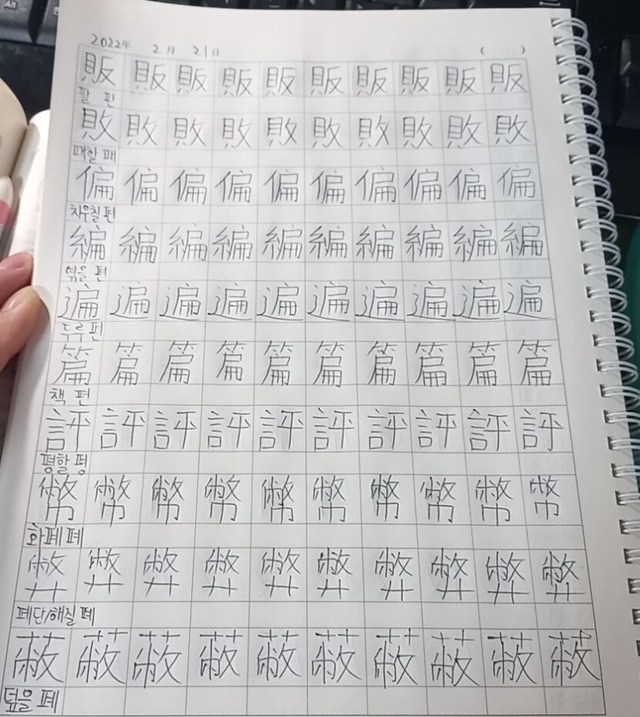 2022年 2月 21日 ( )
販 販 販 販 販 販 販 販 販 販
팔 판
敗 敗 敗 敗 敗 敗 敗 敗 敗 敗
패할 패
偏 偏 偏 偏 偏 偏 偏 偏 偏 偏
치우칠 편
編 編 編 編 編 編 編 編 編 編
엮을 편
遍 遍 遍 遍 遍 遍 遍 遍 遍 遍
두루 편
篇 篇 篇 篇 篇 篇 篇 篇 篇 篇
책 편
評 評 評 評 評 評 評 評 評 評
평할 평
幣 幣 幣 幣 幣 幣 幣 幣 幣 幣
화폐 폐
弊 弊 弊 弊 弊 弊 弊 弊 弊 弊
폐단/해질 폐
蔽 蔽 蔽 蔽 蔽 蔽 蔽 蔽 蔽 蔽
덮을 폐